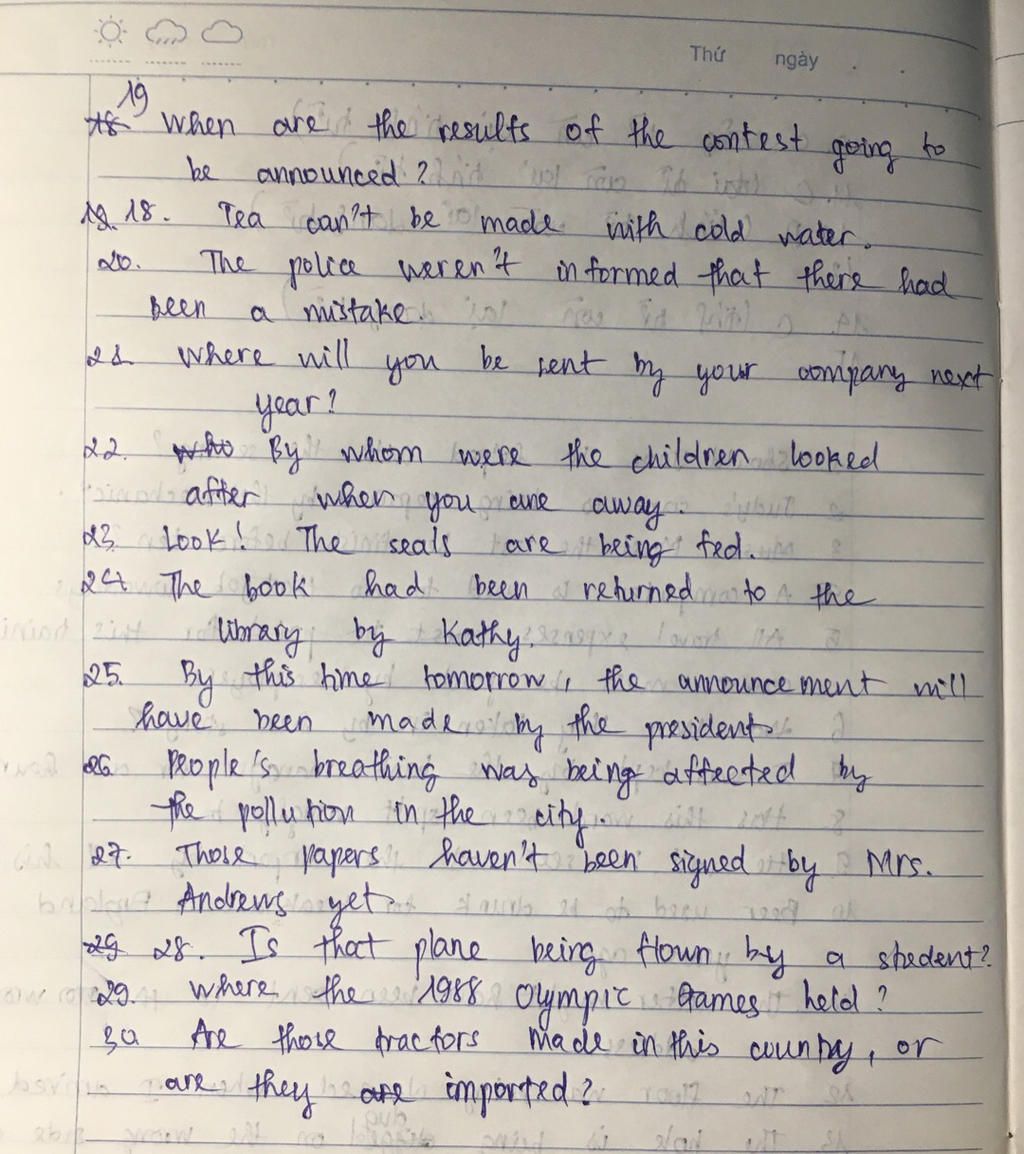 Thứ ngày
19
18 When are the results of the contest going to
be announced?
19 18. Tea can't be made with cold water.
20. The police weren't informed that there had
been a mistake.
21 Where will you be sent by your company next
year?
22. who By whom were the children looked
after when you are away.
23. Look! The seals are being fed.
24 The book had been returned to the
library by Kathy.
25. By this time tomorrow, the announcement will
have been made by the president.
26. People's breathing was being affected by
the pollution in the city.
27. Those papers haven't been signed by Mrs.
Andrews yet.
29 28. Is that plane being flown by a student?
29. Where the 1988 Olympic Games held?
30 Are those tractors made in this country, or
are they are imported?